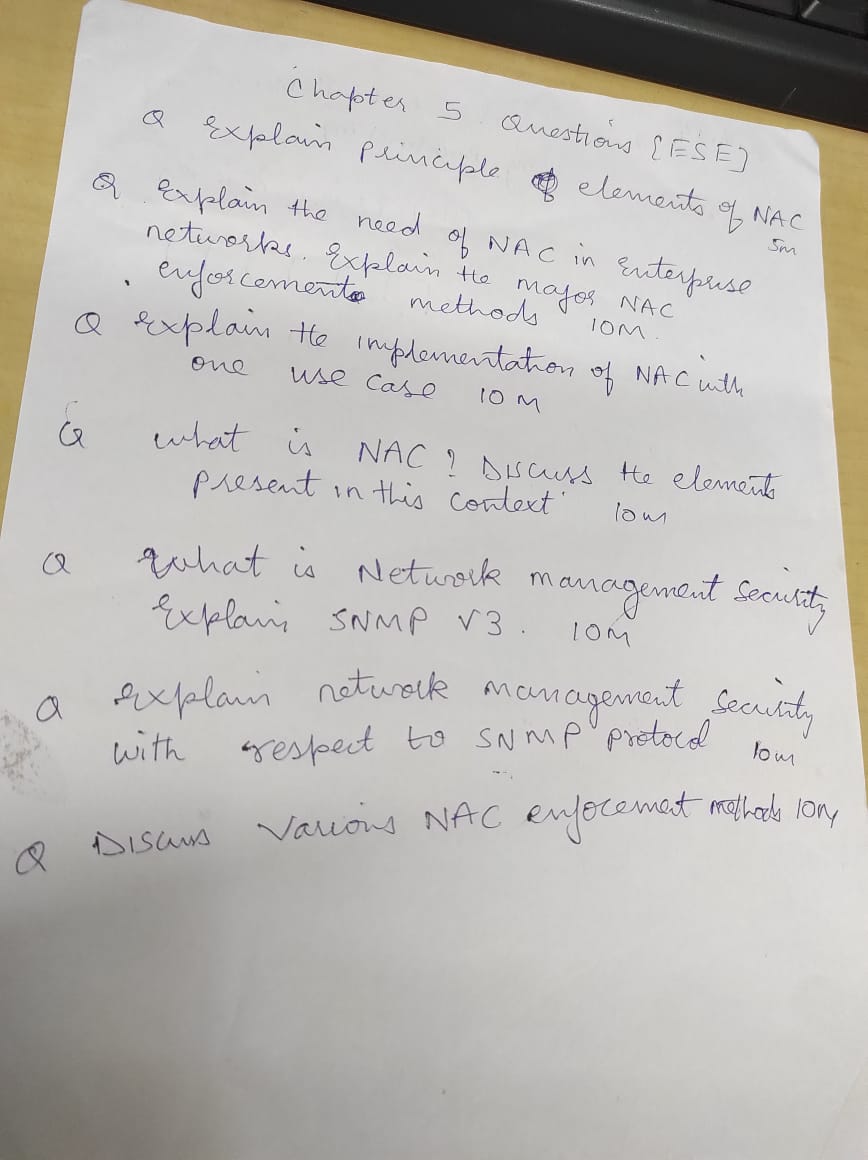 Chapter 5 Questions [ESE]
Q Explain principle elements of NAC
5m
Q Explain the need of NAC in Enterprise
networks. Explain the major NAC
enforcements methods 10M.
Q Explain the implementation of NAC with
one use case 10 M
Q what is NAC? Discuss the elements
present in this context 10m
Q What is Network management Security
Explain SNMP V3. 10M
Q Explain network management Security
with respect to SNMP protocol 10m
Q Discuss Various NAC enforcement methods 10m